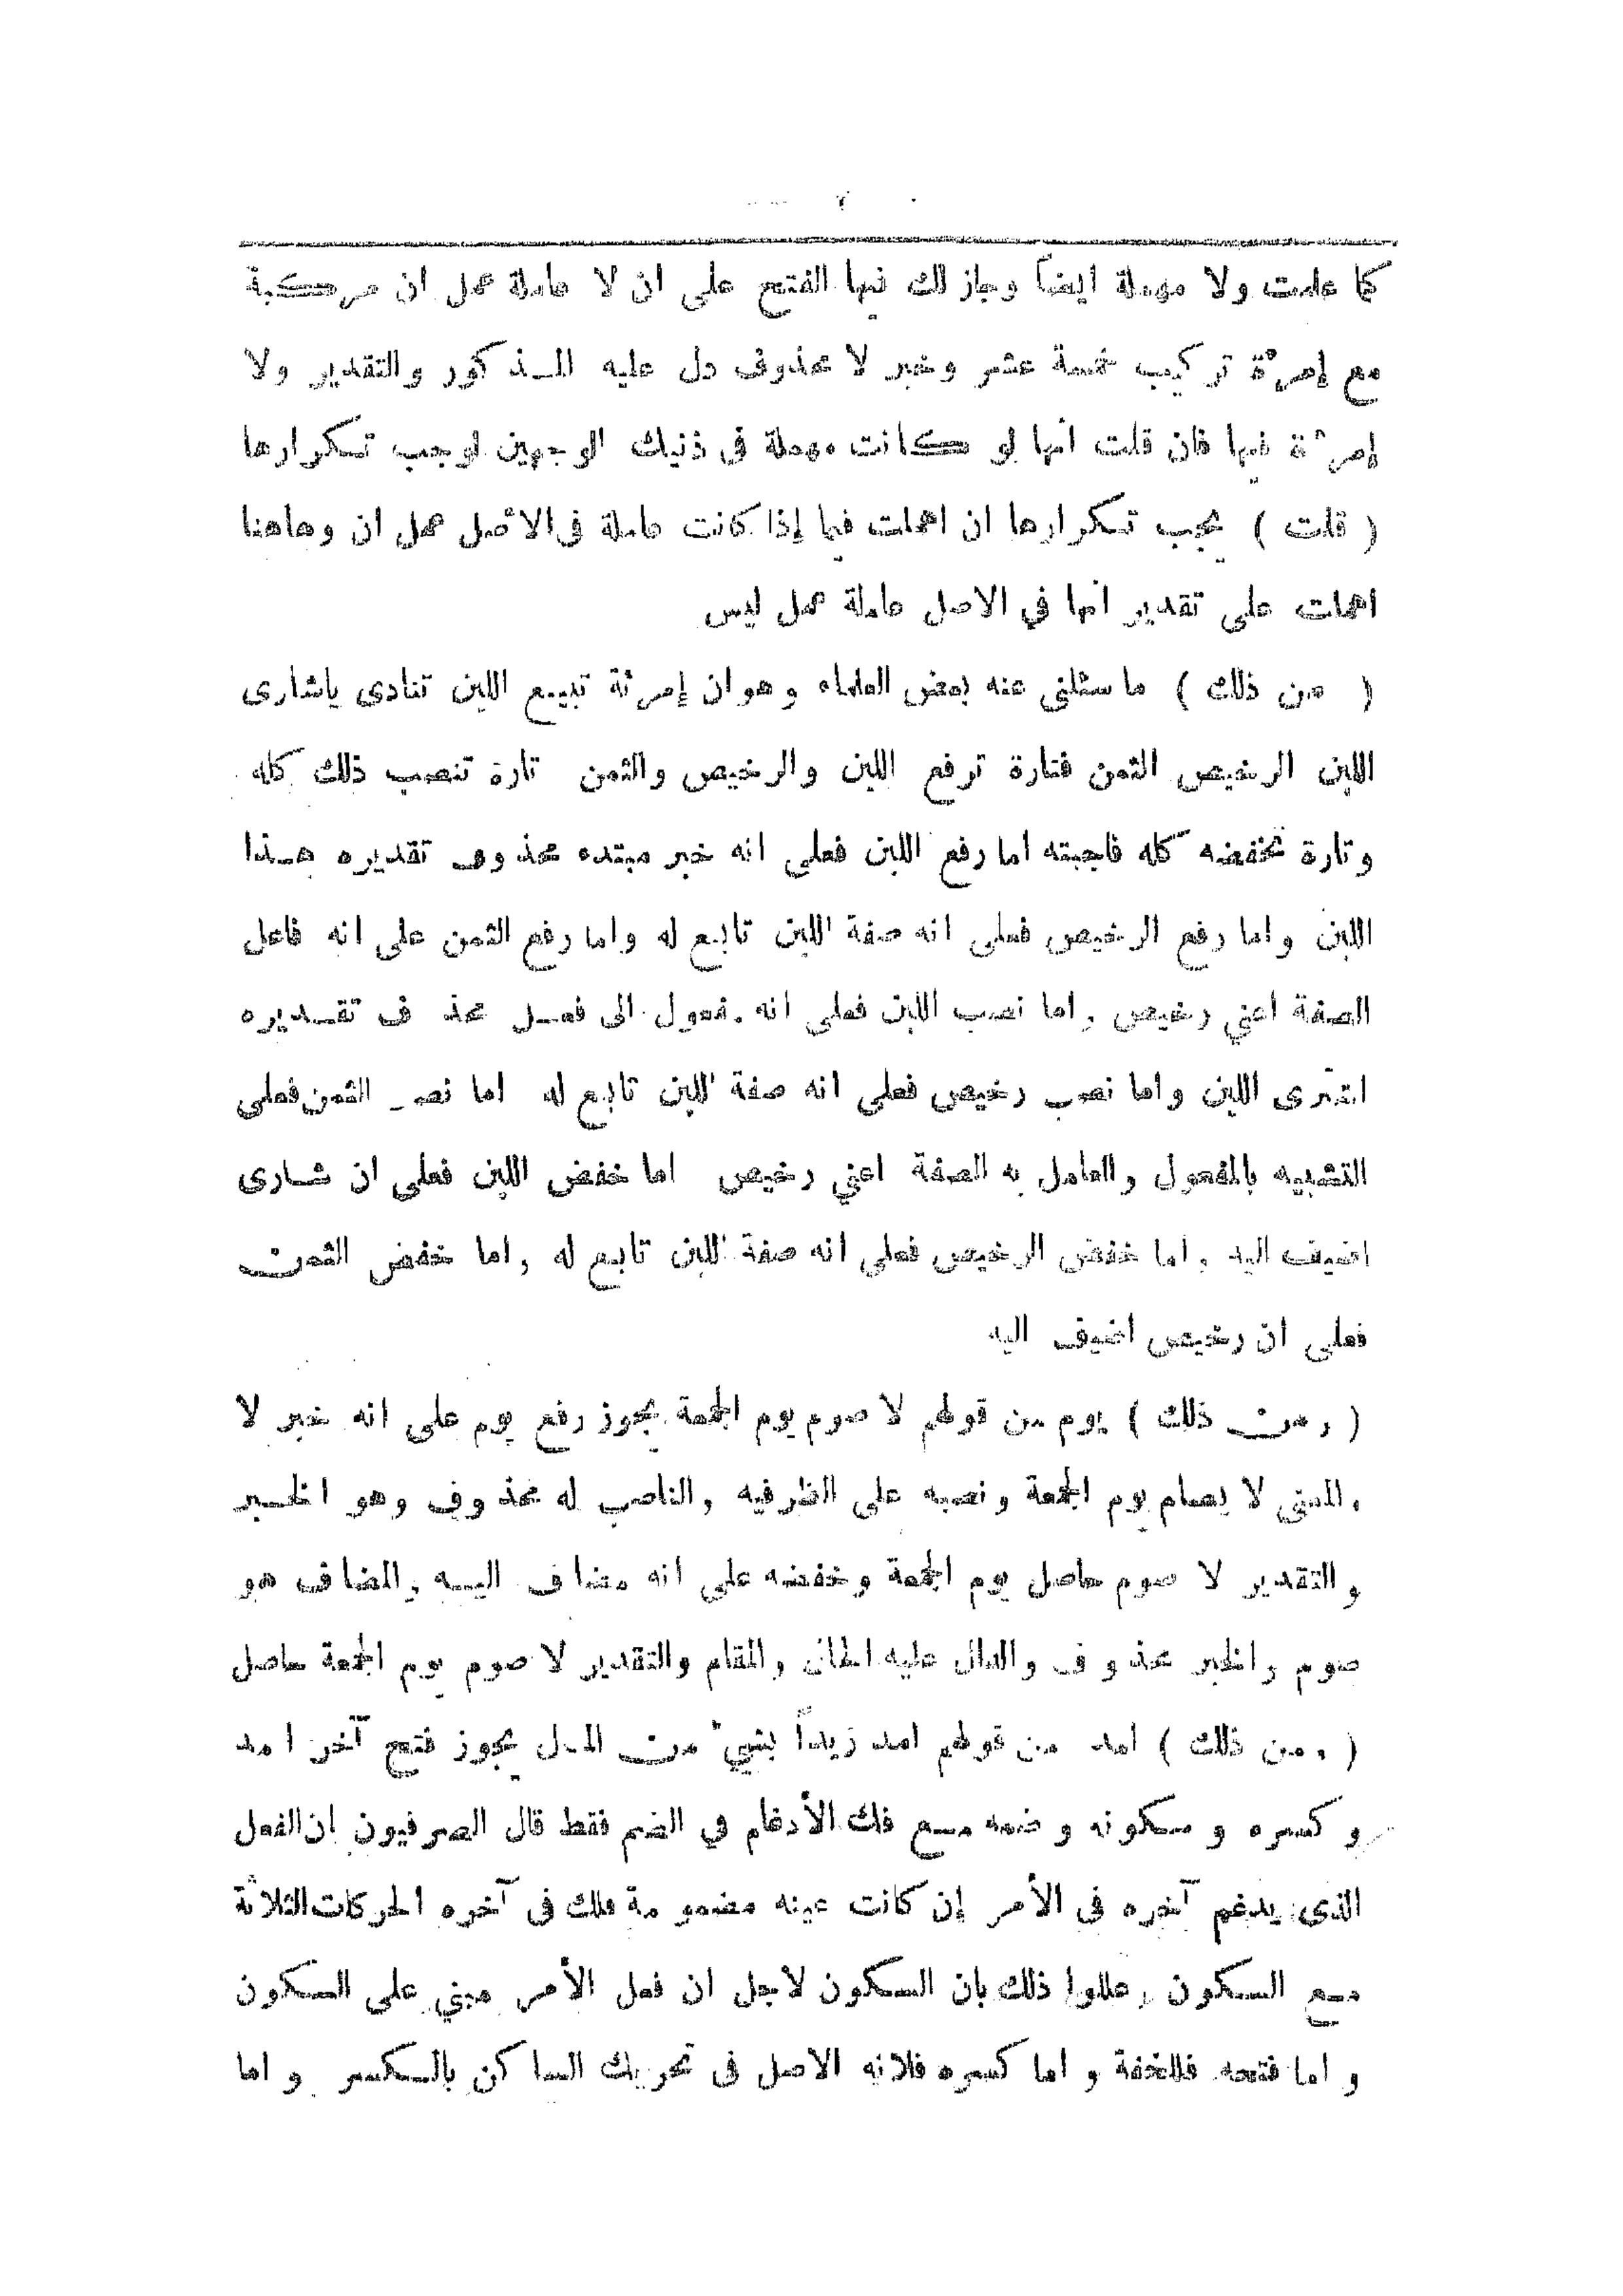 كما علمت ولا مهملة ايضاً وجاز لك فيها الفتح على ان لا عاملة عمل ان مركبة
مع إمرئة تركيب خمسة عشر وخبر لا محذوف دل عليه المذكور والتقدير ولا
إمرئة فيها فان قلت انها لو كانت مهملة فى ذنيك الوجهين لوجب تكرارها
( قلت ) يجب تكرارها ان اهملت فيما إذا كانت عاملة فى الاصل عمل ان وهاهنا
اهملت على تقدير انها في الاصل عاملة عمل ليس
( من ذلك ) ما سئلنى عنه بعض العلماء وهو ان إمرئة تبيع اللبن تنادى ياشارى
اللبن الرخيص الثمن فتارة ترفع اللبن والرخيص والثمن تارة تنصب ذلك كله
وتارة تخفضه كله فاجبته اما رفع اللبن فعلى انه خبر مبتده محذوف تقديره هذا
اللبن واما رفع الرخيص فعلى انه صفة اللبن تابع له واما رفع الثمن على انه فاعل
الصفة اعني رخيص واما نصب اللبن فعلى انه مفعول الى فعل محذ ف تقديره
اشترى اللبن واما نصب رخيص فعلى انه صفة للبن تابع له اما نصب الثمن فعلى
التشبيه بالمفعول والعامل به الصفة اعني رخيص اما خفض اللبن فعلى ان شارى
اضيف اليه واما خفض الرخيص فعلى انه صفة للبن تابع له واما خفض الثمن
فعلى ان رخيص اضيف اليه
( ومن ذلك ) يوم من قولهم لا صوم يوم الجمعة يجوز رفع يوم على انه خبر لا
والمعنى لا يصام يوم الجمعة ونصبه على الظرفيه والناصب له محذوف وهو الخبر
والتقدير لا صوم حاصل يوم الجمعة وخفضه على انه مضاف اليه والمضاف هو
صوم والخبر محذوف والدال عليه الحال والمقام والتقدير لا صوم يوم الجمعة حاصل
( ومن ذلك ) امد من قولهم امد زيداً بشيء من المال يجوز فتح آخر امد
وكسره وسكونه وضمه مع فك الأدغام في الضم فقط قال الصرفيون ان الفعل
الذى يدغم آخره فى الأمر إن كانت عينه مضمومة فلك فى آخره الحركات الثلاثة
مع السكون وعللوا ذلك بان السكون لاجل ان فعل الأمر مبني على السكون
واما فتحه فللخفة واما كسره فلانه الاصل فى تحريك الساكن بالكسر واما